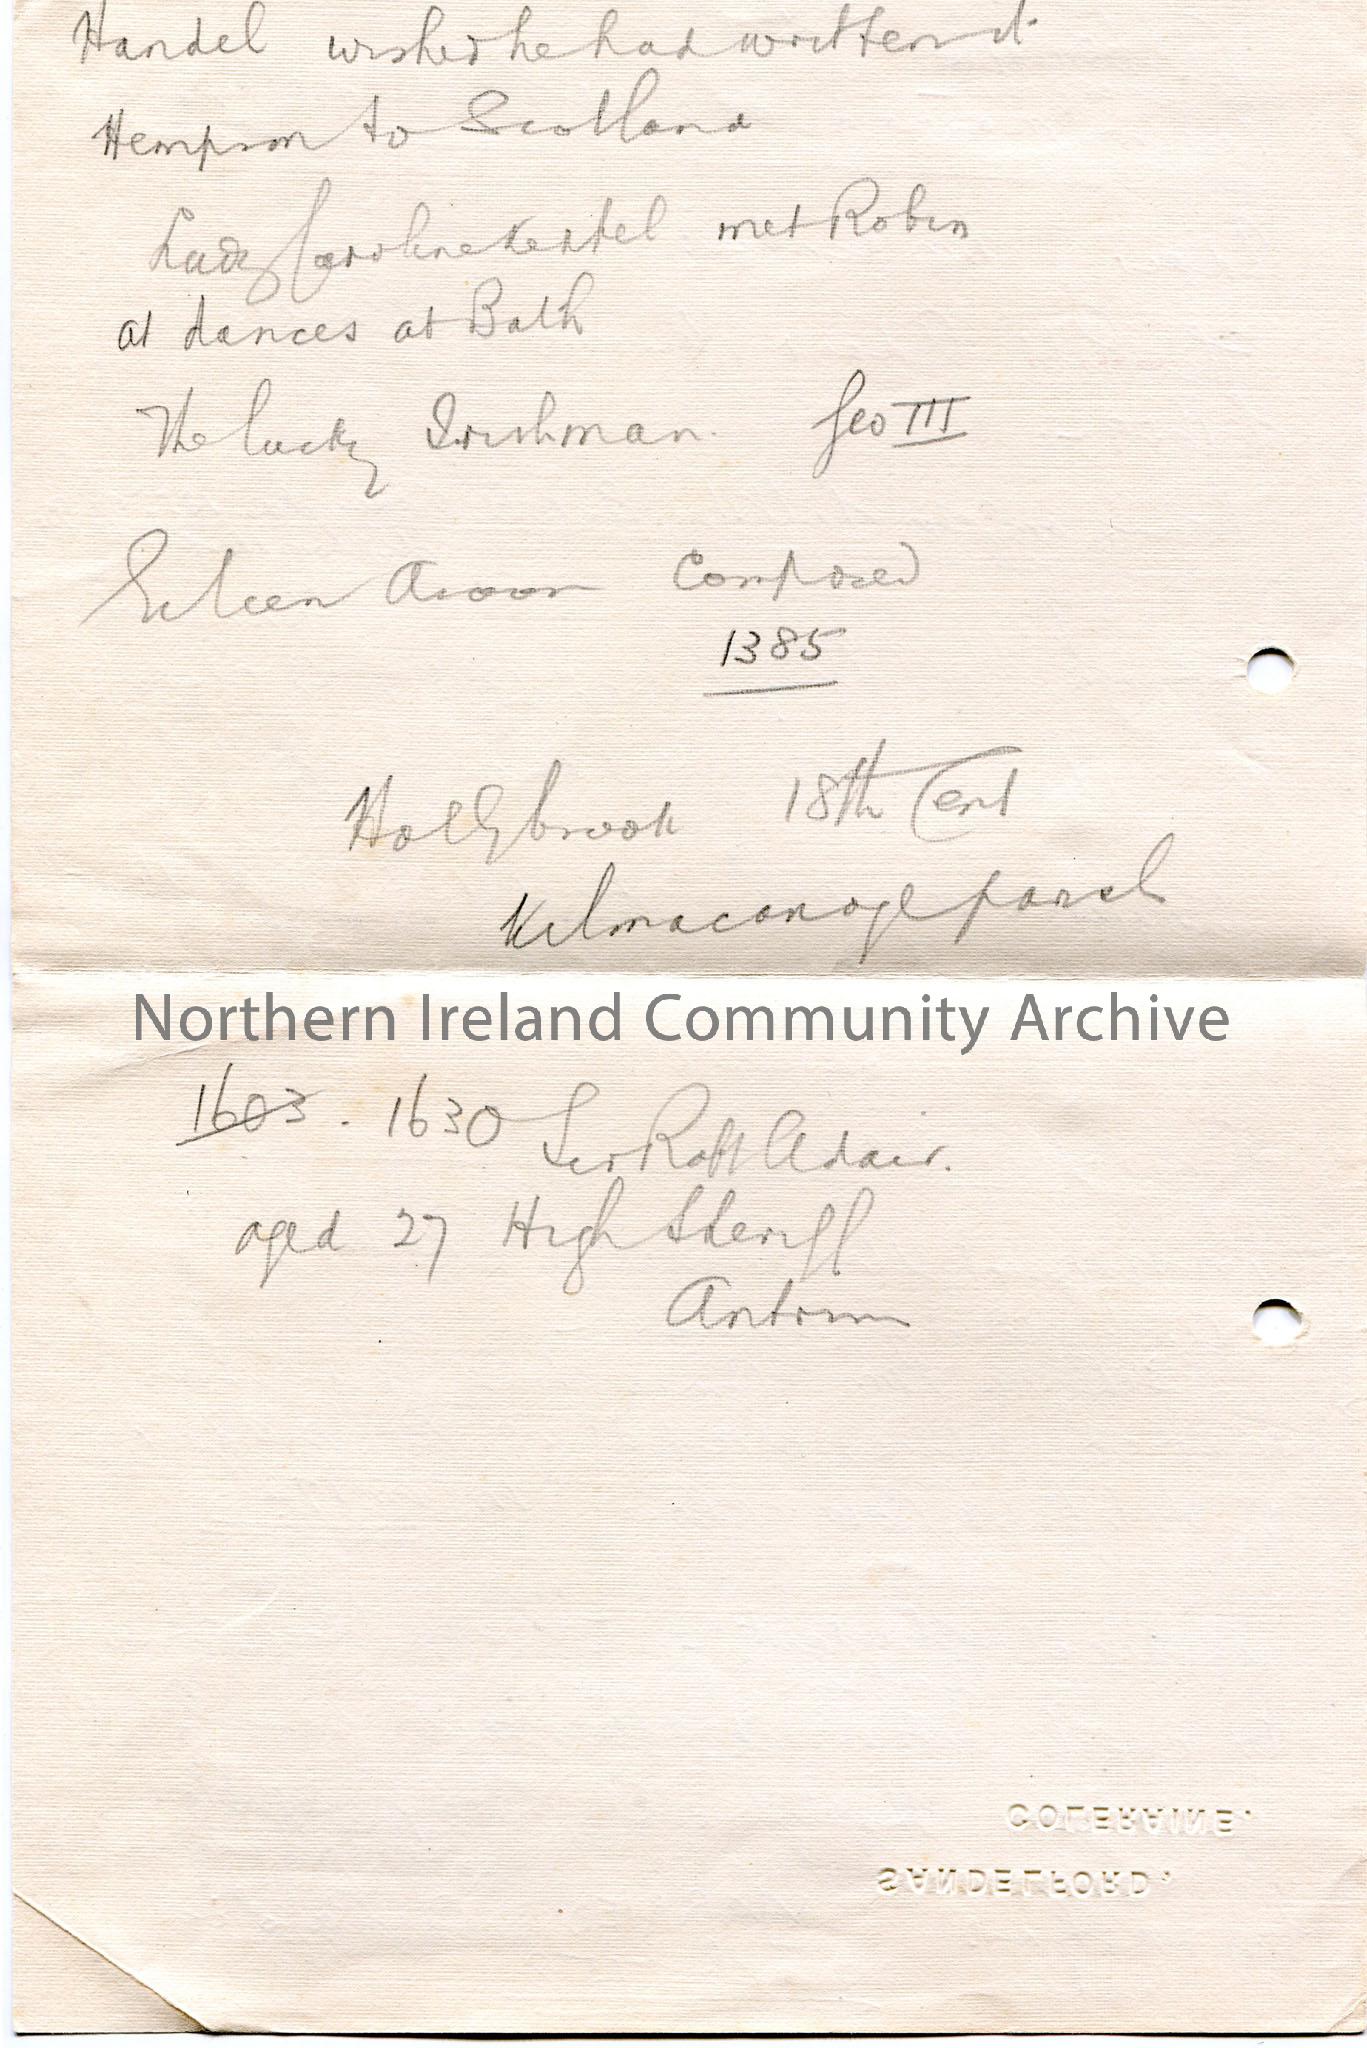 Handel wished he had written it.
Hempson to Scotland
Lady Caroline Keppel met Robin
at dances at Bath
The lucky Irishman. Geo III
Eileen Aroon Composed
1385
Hollybrook 18th Cent
Kilmacanoge parish
Northern Ireland Community Archive
1603. 1630 Sir Robt Adair.
aged 27 High Sheriff
Antrim
COLERAINE.
SANDELFORD,